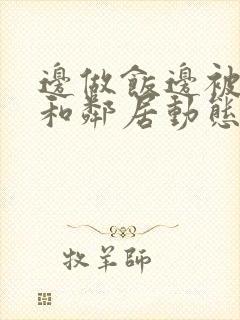 邊做飯邊被
和鄰居動態
牧羊師